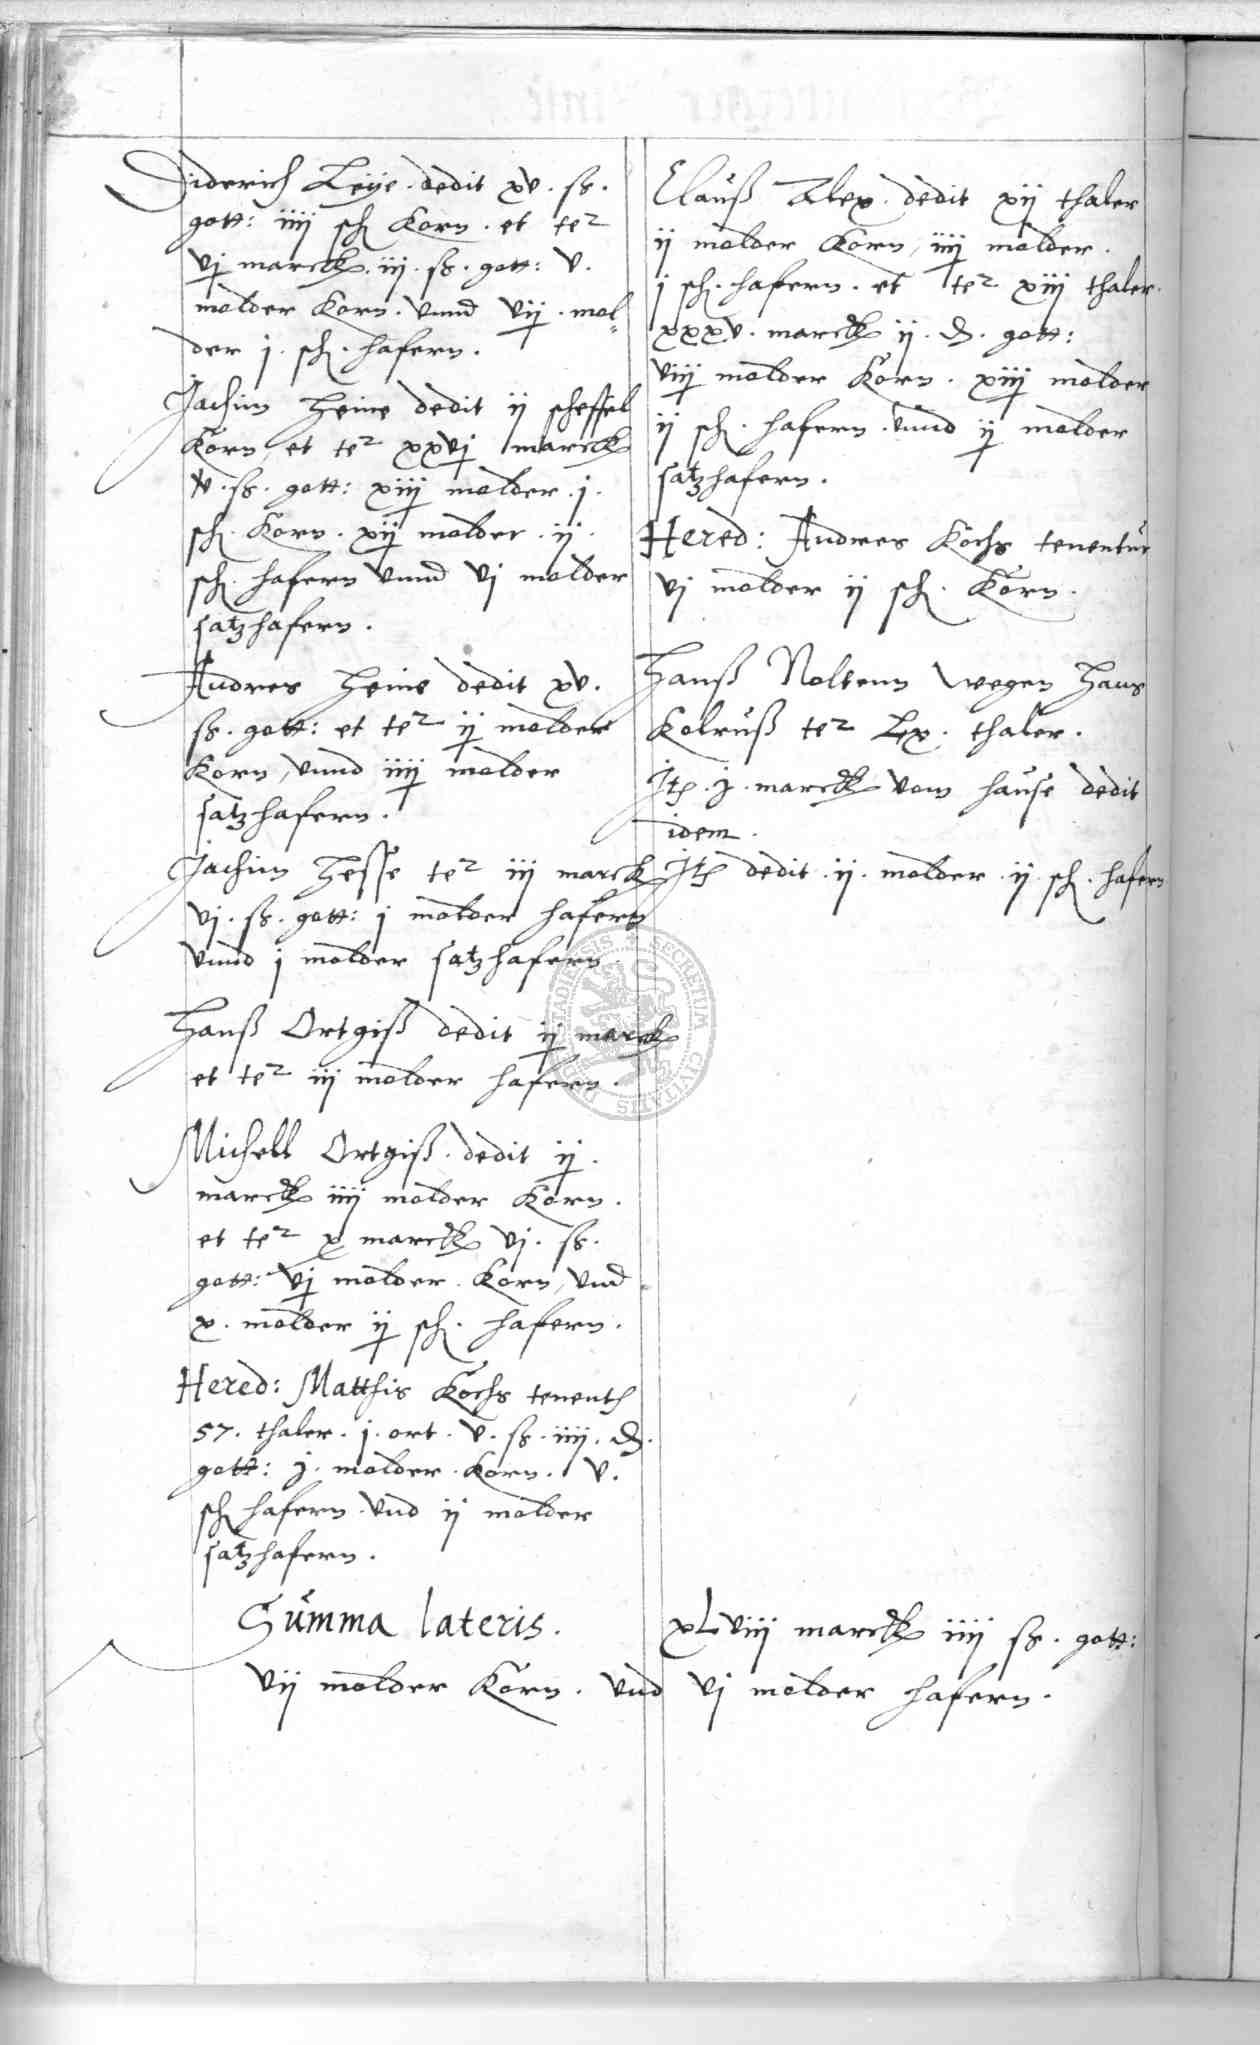 Diderich Leÿe dedit xv. ß.
gott: iiij sch Korn. et te²
vj marck. iij. ß. gott: v.
molder Korn. vnnd vij. mol-
der j. sch. hafern.
Jachim Heine dedit ij scheffel
Korn, et te² xxvj marck
v. ß. gott: xiij molder. j.
sch. Korn. xij molder. ij.
sch. hafern vnnd vj molder
satzhafern.
Andres Heine dedit xv.
ß. gott: et te² ij molder
Korn, vnnd iiij molder
satzhafern.
Jachim Hesse te² iij marck
vj. ß. gott: j molder hafern
vnnd j molder satzhafern.
Hanß Ortgiß dedit ij marck
et te² iij molder hafern.
Michell Ortgiß. dedit ij.
marck iiij molder Korn.
et te² x marck vj. ß.
gott: vj molder. Korn, vnd
x. molder ij sch. hafern.
Hered: Matthis Kochs tenent
57. thaler. j. ort. v. ß. iiij. d.
gott: j. molder. Korn. v.
sch hafern. vnd ij molder
satzhafern.
Clauß Alex. dedit xij thaler
ij molder Korn, iiij molder.
j sch. hafern. et te² xiij thaler.
xxxv. marck ij. d. gott:
viij molder Korn. xiij molder
ij sch. hafern. vnnd ij molder
satzhafern.
Hered: Andres Kochs tenentur
vj molder ij sch. Korn.
Hanß Noltenn wegen Hans
Kolruß te² Lx. thaler.
Jt. j. marck vom hause dedit
idem.
Jt dedit. ij. molder. ij. sch. hafern
SECRETUM CIVITALIS
Summa lateris. xLviij marck iiij ß. gott:
vij molder Korn. vnd vj molder hafern.